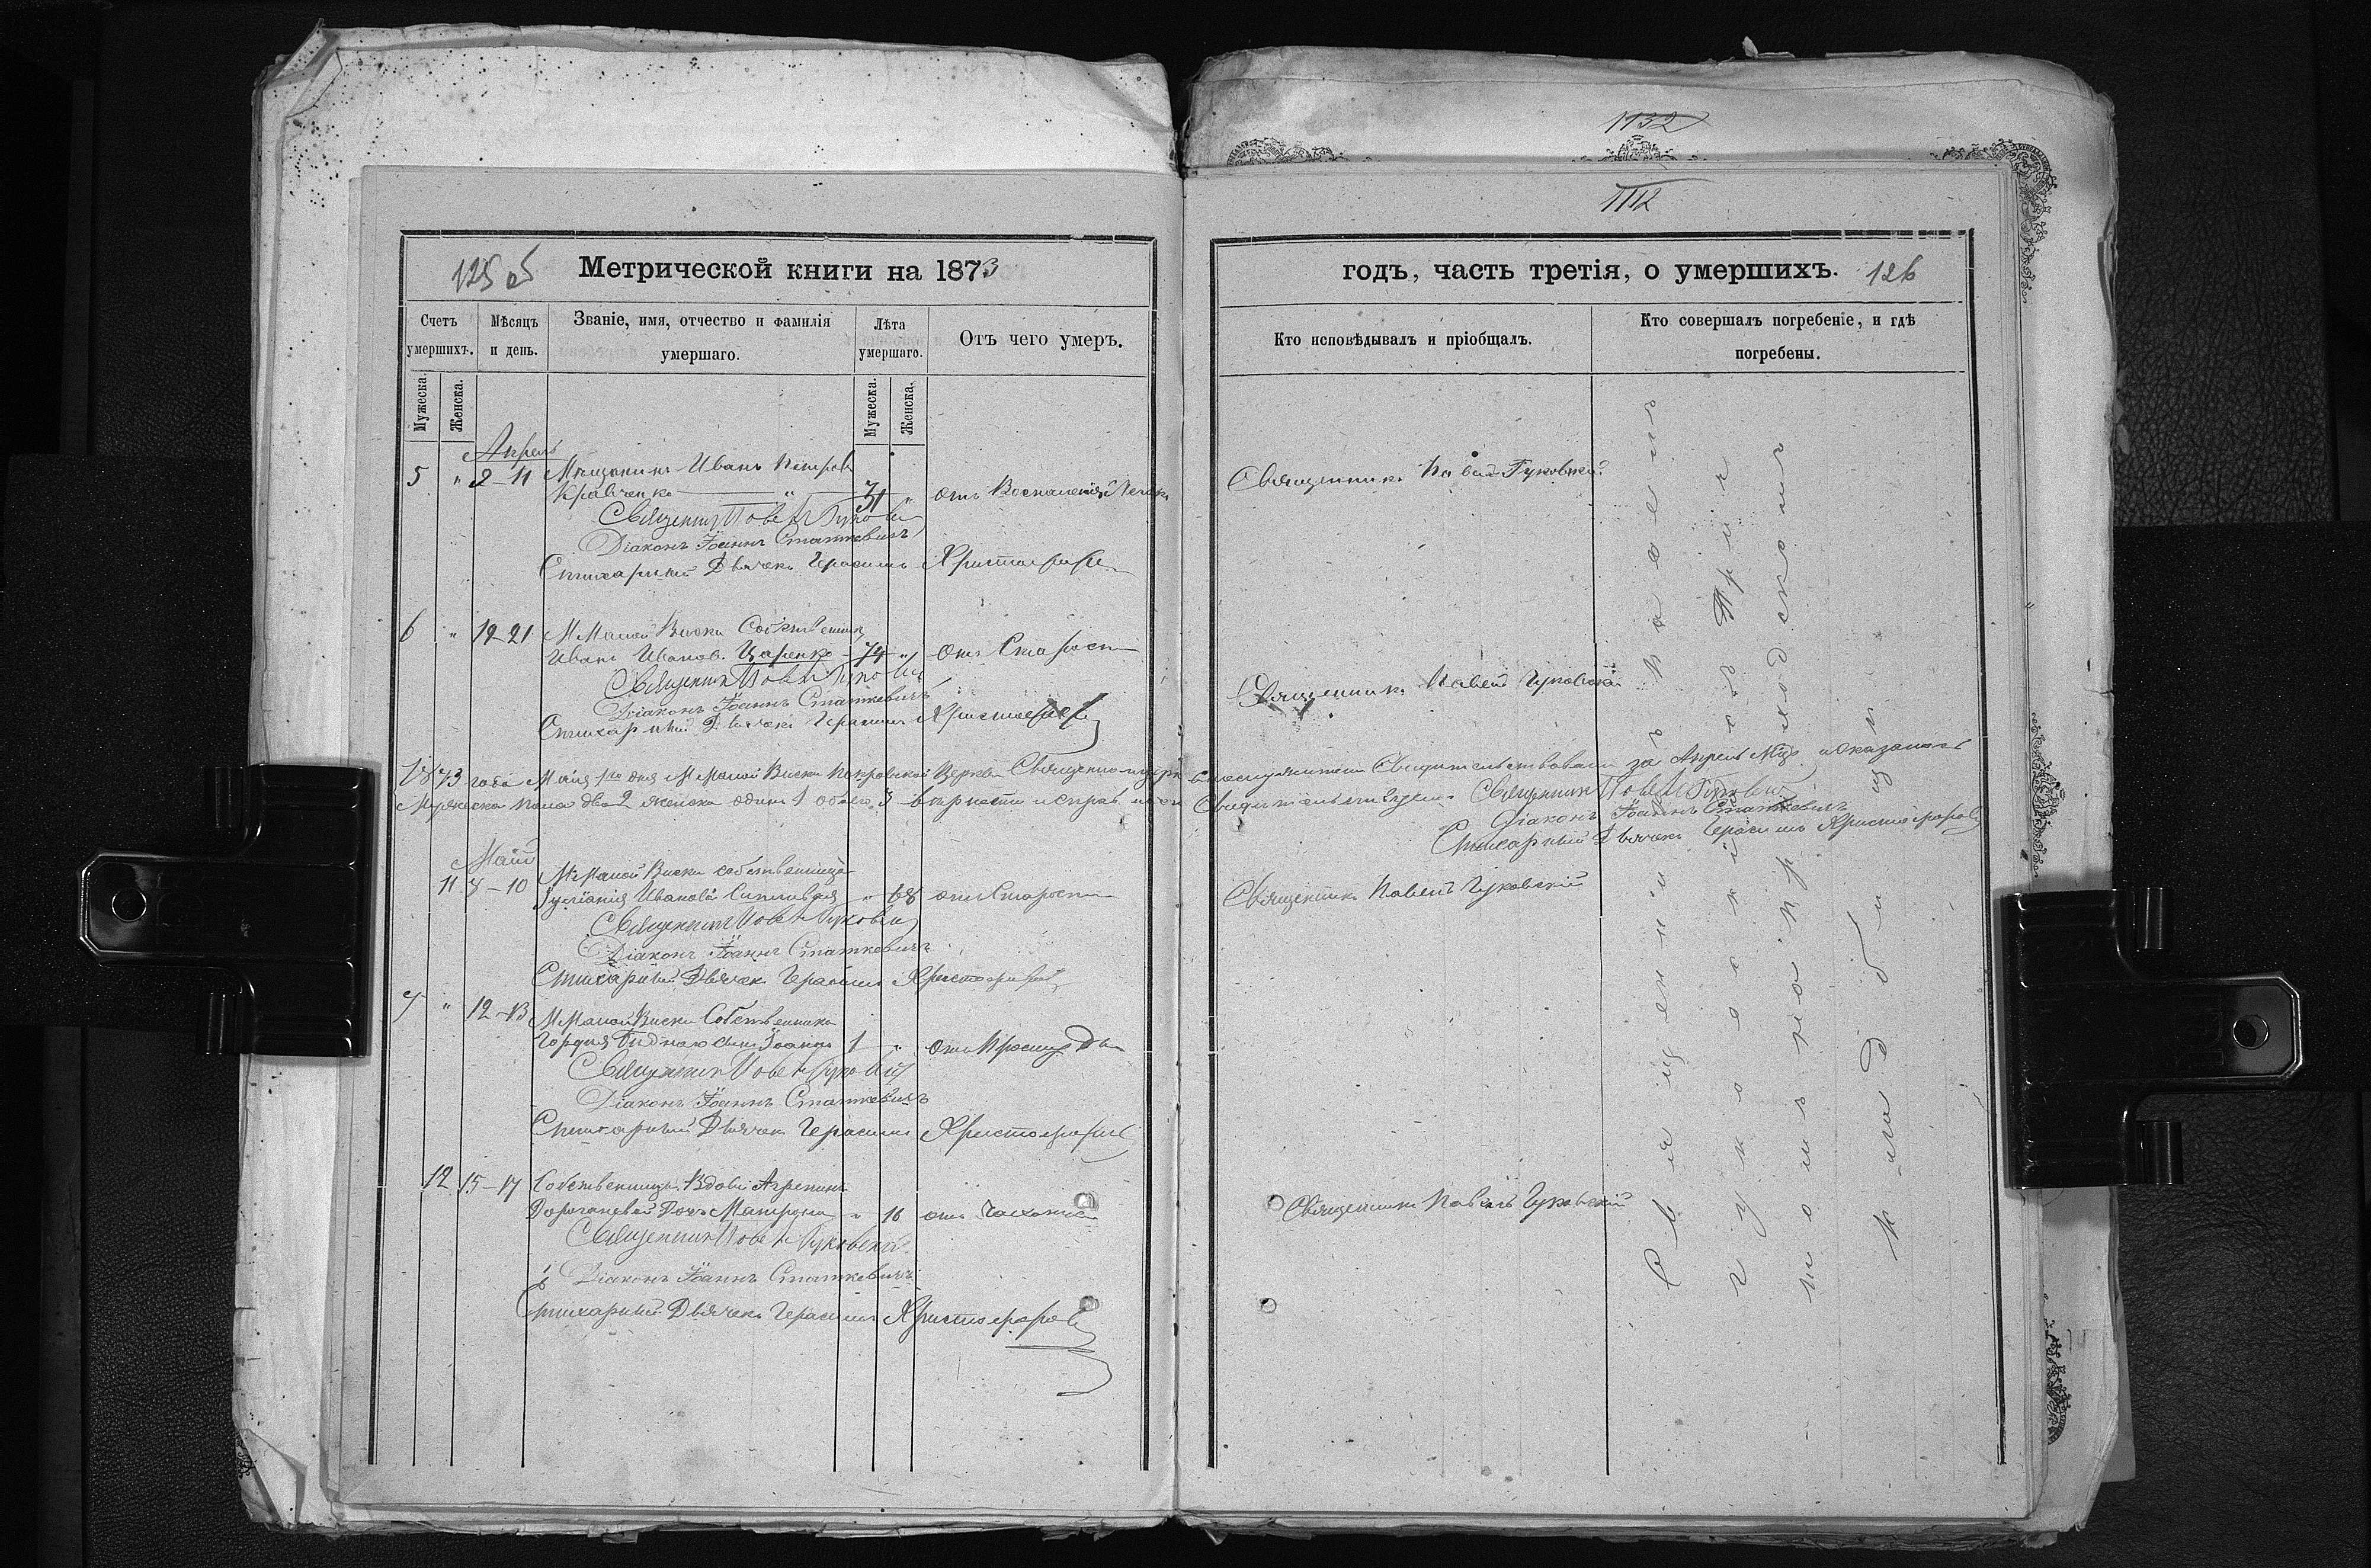 1132
1112
125 об
Метрической книги на 1873
годъ, часть третія, о умершихъ.
126
Счетъ умершихъ.
Мѣсяцъ и день.
Званіе, имя, отчество и фамилія умершаго.
Лѣта умершаго.
Отъ чего умеръ.
Кто исповѣдывалъ и пріобщалъ.
Кто совершалъ погребеніе, и гдѣ погребены.
Мужеска.
Женска.
Мужеска.
Женска.
Апрель
5 " 2-11 Мѣщанинъ Иванъ Петровъ
Кравченко " 31 " отъ Воспаленія
Священникъ Павелъ Гуковскій
Священникъ Павелъ Гуковскій
Діаконъ Іоаннъ Статкевичъ
Стихарный Дьячекъ Герасимъ Христофоровъ
6 " 19-21 М Малой Виски Собственникъ
Иванъ Иванов. Царенко 74 " отъ Старости
Священникъ Павелъ Гуковскій
Священникъ Павелъ Гуковскій
Діаконъ Іоаннъ Статкевичъ
Стихарный Дьячекъ Герасимъ Христофоровъ
1873 года Мая 1го дня М Малой Виски Покровской Церкви Священно и церковнослужители Свидѣтельствовали за Апрель Мцъ и оказалось
Мужеска пола два 2 женска одинъ 1 обоего 3 вѣрности исправ. Свидѣтельствуемъ Священникъ Павелъ Гуковскій
Діаконъ Іоаннъ Статкевичъ
Стихарный Дьячекъ Герасимъ Христофоровъ
Май
11 8-10 М Малой Виски собственница
Іуліанія Иванова " 68 отъ Старости
Священникъ Павелъ Гуковскій
Священникъ Павелъ Гуковскій
Діаконъ Іоаннъ Статкевичъ
Стихарный Дьячекъ Герасимъ Христофоровъ
7 " 12-13 М Малой Виски Собственника
Гордія сынъ Іоаннъ 1 " отъ Простуды
Священникъ Павелъ Гуковскій
Діаконъ Іоаннъ Статкевичъ
Стихарный Дьячекъ Герасимъ Христофоровъ
12 15-17 Собственницы Вдовы Агрепины
Дорогановой Дочь Матрона " 16 отъ Чахотки
Священникъ Павелъ Гуковскій
Священникъ Павелъ Гуковскій
Діаконъ Іоаннъ Статкевичъ
Стихарный Дьячекъ Герасимъ Христофоровъ
Священникъ Павелъ
Гуковскій при
приходскомъ
кладбищи